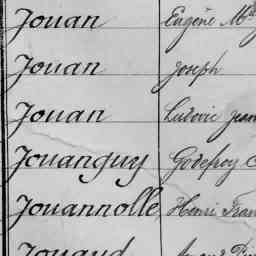 Jouan Eugène M
Jouan Joseph
Jouan Ludovic Jean
Jouanguy Godefroy
Jouannolle Henri Fran
Jouaud